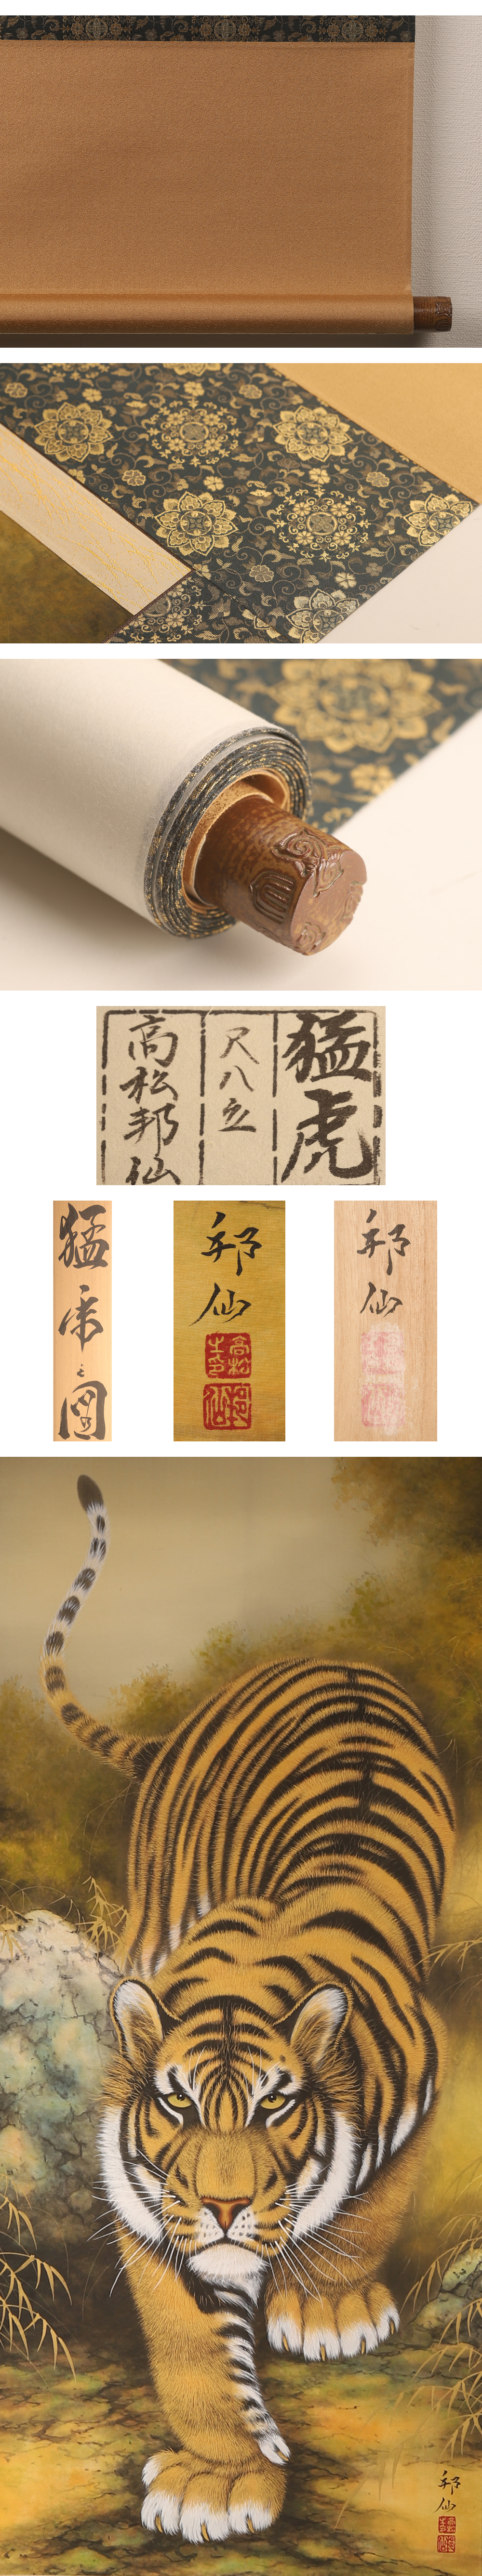 猛虎
尺八立
高松邦仙
猛虎之図
邦仙
高松
士印
邦仙
邦仙
邦仙